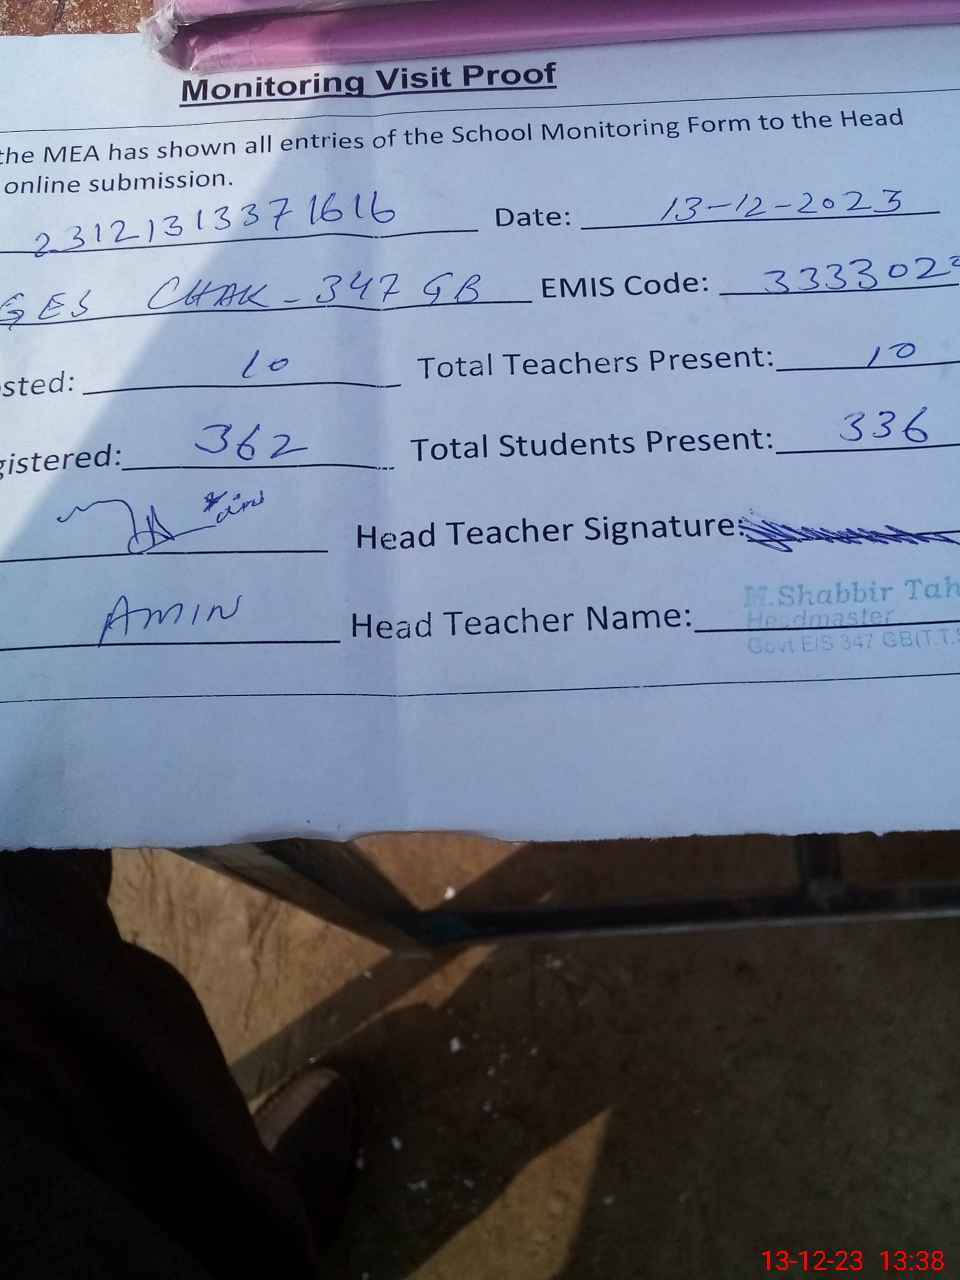 Monitoring Visit Proof
the MEA has shown all entries of the School Monitoring Form to the Head
online submission.
23121313371616 Date: 13-12-2023
GES CHAK-347 GB EMIS Code: 3333023
osted: 10 Total Teachers Present: 10
gistered: 362 Total Students Present: 336
Head Teacher Signature:
AMIN Head Teacher Name: M.Shabbir Tah
Headmaster
Govt.E/S 347 GB(T.T.S
13-12-23 13:38